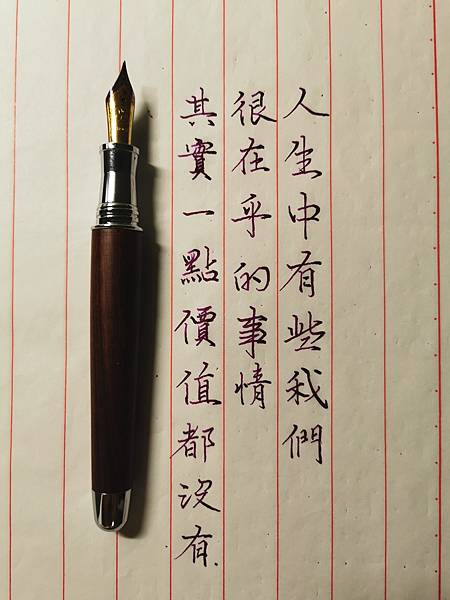 人生中有些我們
很在乎的事情
其實一點價值都沒有.